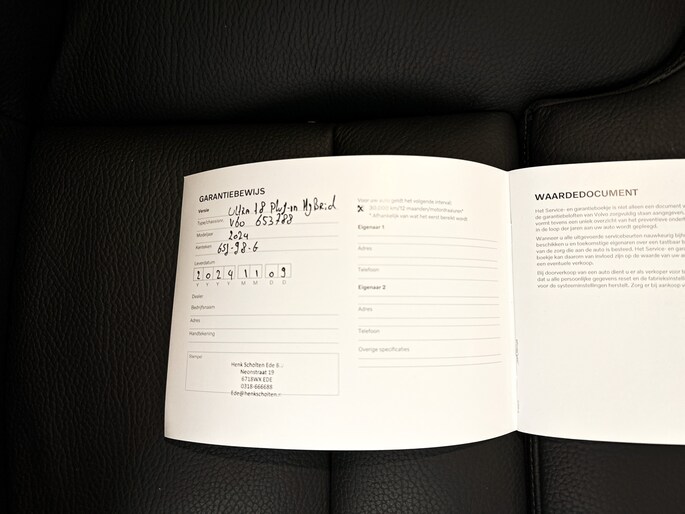 GARANTIEBEWIJS
Versie Ultra T8 Plug-in Hybrid
Type/chassisnr. V60 653788
Modeljaar 2024
Kenteken
Leverdatum
2 0 2 4 1 1 0 9
Y Y Y Y M M D D
Dealer
Bedrijfsnaam
Adres
Handtekening
Stempel
Henk Scholten Ede B
Neonstraat 19
6718WX EDE
0318-666688
Ede@henkscholten.
Voor uw auto geldt het volgende interval:
x 30.000 km/12 maanden/motortreasures*
* Afhankelijk van wat het eerst bereikt wordt
Eigenaar 1
Adres
Telefoon
Eigenaar 2
Adres
Telefoon
Overige specificaties
WAARDEDOCUMENT
Het Service- en garantieboekje is niet alleen een document
de garantiebeloften van Volvo zorgvuldig staan aangegeven,
vormt tevens een uniek overzicht van het preventieve
in de loop der jaren aan uw auto wordt gepleegd.
Wanneer u alle uitgevoerde servicebeurten nauwkeurig
beschikken u en toekomstige eigenaren over een tastbaar
van de zorg die aan de auto is besteed. Het Service- en
boekje kan daarom van invloed zijn op de waarde van uw
een eventuele verkoop.
Bij doorverkoop van een auto dient u er als verkoper voor
dat u alle persoonlijke gegevens reset en de
voor de systeeminstellingen herstelt. Zorg er bij